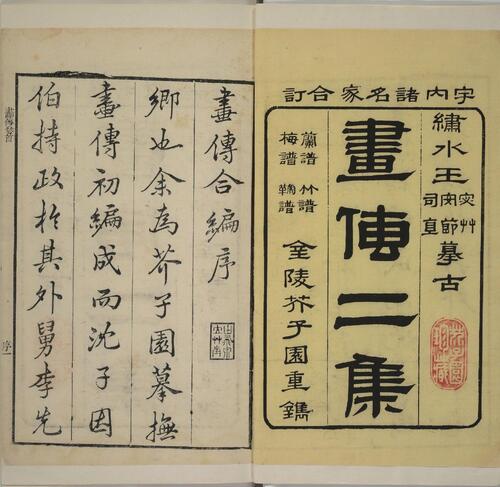 宇內諸名家合訂
繡水王宓艸安節司直摹古
畫傳二集
蘭譜 竹譜
梅譜 鞠譜
金陵芥子園重鐫
畫傳合編序
鄉也余為芥子園摹撫
畫傳初編成而沈子因
伯持政於其外舅李先
序一